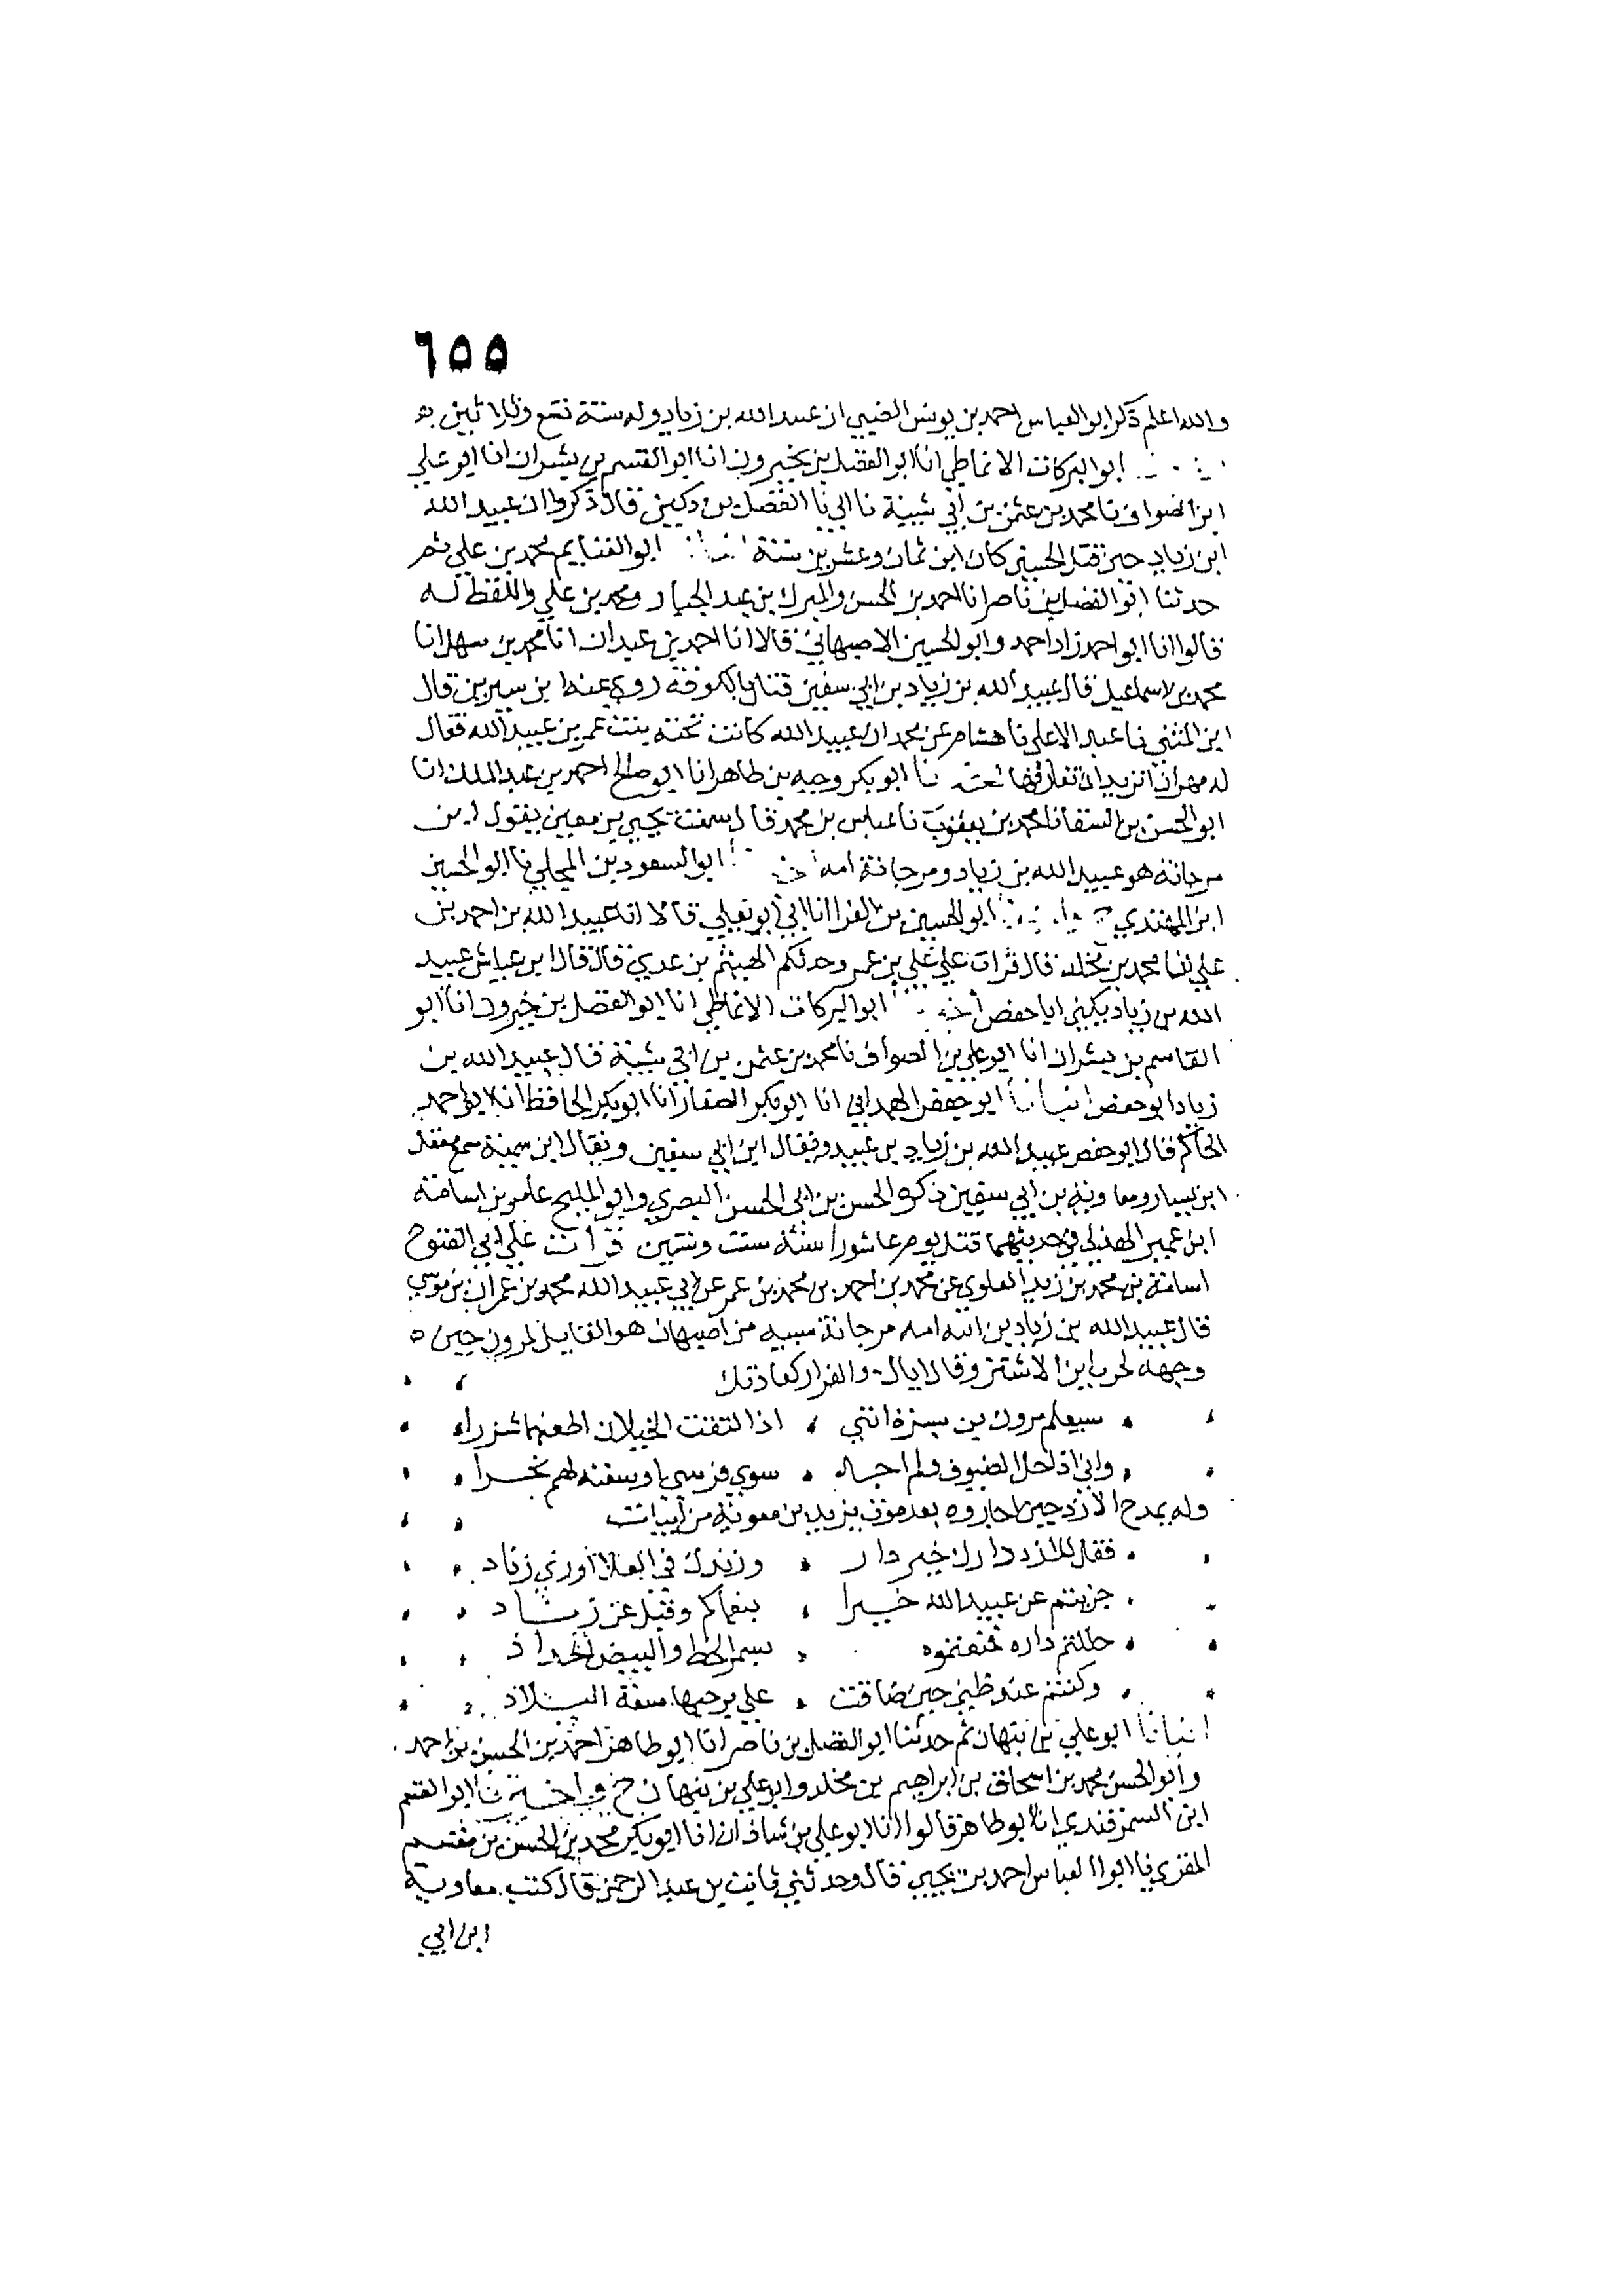 ٦٥٥
والله اعلم ذكر ابو العباس احمد بن يونس الضبي ان عبيد الله بن زياد ولد سنة تسع وثلاثين
ابو البركات الانماطي انا ابو الفضل بن خيرون انا ابو القسم بن بشران انا ابو علي
ابن الصواف نا محمد بن عثمن بن ابي شيبة نا ابي نا الفضل بن دكين قال ذكروا ان عبيد الله
ابن زياد حين قتل الحسين كان ابن ثمان وعشرين سنة ابو الغنايم محمد بن علي ثم
حدثنا ابو الفضل بن ناصر انا احمد بن الحسن والمبرك بن عبد الجبار ومحمد بن علي واللفظ له
قالوا انا ابو احمد زاد احمد وابو الحسين الاصبهاني قالا انا احمد بن عبدان انا محمد بن سهل انا
محمد بن اسماعيل قال عبيد الله بن زياد بن ابي سفين قتل بالكوفة روي عنه ابن سيرين قال
ابن المثني نا عبد الاعلي نا هشام عن محمد ان عبيد الله كانت تحته بنت عمر بن عبيد الله فقال
له مهران اتريد ان تفارقها نعم نا ابو بكر وجيه بن طاهر انا ابو صالح احمد بن عبد الملك انا
ابو الحسن بن السقا نا محمد بن يعقوب نا عباس بن محمد قال سمعت يحيي بن معين يقول ابن
مرجانة هو عبيد الله بن زياد ومرجانة امه ابو السعود بن المجلي نا ابو الحسين
ابن المهتدي ابو الحسين بن الفرا انا ابي ابو يعلي قالا انا عبيد الله بن احمد بن
علي انا محمد بن مخلد قال قرات علي علي بن عمر وحدثكم الهيثم بن عدي قال قال ابن عياش عبيد
الله بن زياد يكني ابا حفص ابو البركات الانماطي انا ابو الفضل بن خيرون انا ابو
القاسم بن بشران انا ابو علي بن الصواف نا محمد بن عثمن بن ابي شيبة قال عبيد الله بن
زياد ابو حفص انبانا ابو جعفر الهمداني انا ابو بكر الصفار انا ابو بكر الحافظ انا ابو احمد
الحاكم قال ابو حفص عبيد الله بن زياد بن عبيد ويقال ابن ابي سفين ويقال ابن سمية سمع معقل
ابن يسار ومعاوية بن ابي سفين ذكره الحسن بن ابي الحسن البصري وابو المليح عامر بن اسامة
ابن عمير الهذلي في حديثهما قتل يوم عاشورا سنة ست وستين قرات علي ابي الفتوح
اسامة بن محمد بن زيد العلوي عن محمد بن احمد بن محمد بن عمر عن ابي عبيد الله محمد بن عمران بن موسي
قال عبيد الله بن زياد بن ابيه امه مرجانة سبيه من اصبهان هو القايل لمرون حين
وجهه لحرب ابن الاشتر وقال اياك والفرار كعادتك
سيعلم مرون بن نسوة انني اذا التقت الخيلان اطعنها شزرا
واني اذا حل الضيوف ولم اجد سوي فرسي اوسعته لهم نحرا
وله يمدح الازد حين اجاروه بعد موت يزيد بن معوية من ابيات
فقل للازد دارك خير دار وزندك في العلا اوري زناد
جزيتم عن عبيد الله خيرا بنعماكم وقيل عن زياد
حللتم داره فمنعتموه بسمر الخط والبيض الحداد
وكنتم عند ظني حين ضاقت علي برحبها سعة البلاد
انبانا ابو علي بن نبهان ثم حدثنا ابو الفضل بن ناصر انا ابو طاهر احمد بن الحسن بن احمد
وابو الحسن محمد بن اسحاق بن ابراهيم بن مخلد وابو علي بن نبهان ح واخبرنا ابو القسم
ابن السمرقندي انا ابو طاهر قالوا انا ابو علي بن شاذان انا ابو بكر محمد بن الحسن بن مقسم
المقري نا ابو العباس احمد بن يحيي قال وحدثني ثابت بن عبد الرحمن قال كتب معاوية
ابن ابي